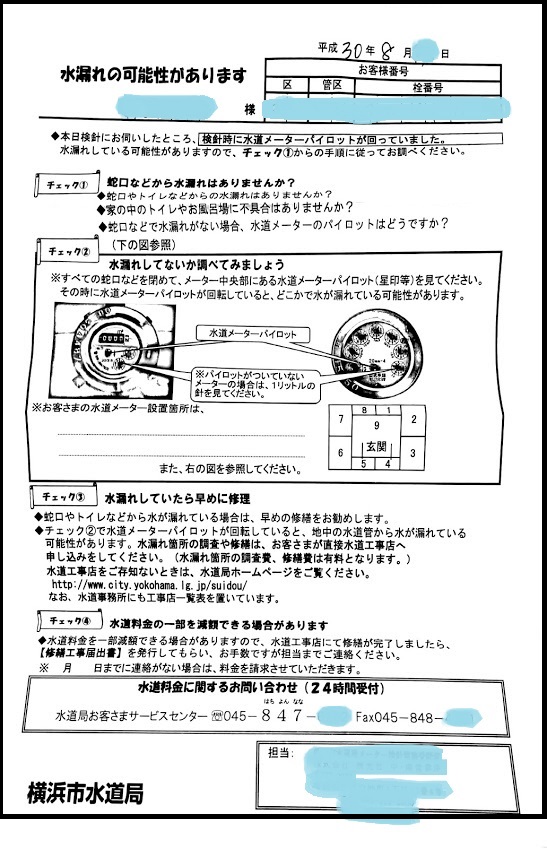 平成30年8月 日
水漏れの可能性があります
お客様番号
区 管区 栓番号
様
◆本日検針にお伺いしたところ、検針時に水道メーターパイロットが回っていました。
水漏れしている可能性がありますので、チェック①からの手順に従ってお調べください。
チェック① 蛇口などから水漏れはありませんか?
◆蛇口やトイレなどからの水漏れはありませんか?
◆家の中のトイレやお風呂場に不具合はありませんか?
◆蛇口などで水漏れがない場合、水道メーターのパイロットはどうですか?
(下の図参照)
チェック②
水漏れしてないか調べてみましょう
※すべての蛇口などを閉めて、メーター中央部にある水道メーターパイロット(星印等)を見てください。
その時に水道メーターパイロットが回転していると、どこかで水が漏れている可能性があります。
水道メーターパイロット
※パイロットがついていない
メーターの場合は、1リットルの
針を見てください。
※お客さまの水道メーター設置箇所は、
また、右の図を参照してください。
8 1
7 9 2
玄関
6 3
5 4
チェック③ 水漏れしていたら早めに修理
◆蛇口やトイレなどから水が漏れている場合は、早めの修繕をお勧めします。
◆チェック②で水道メーターパイロットが回転していると、地中の水道管から水が漏れている
可能性があります。水漏れ箇所の調査や修繕は、お客さまが直接水道工事店へ
申し込みをしてください。(水漏れ箇所の調査費、修繕費は有料となります。)
水道工事店をご存知ないときは、水道局ホームページをご覧ください。
http://www.city.yokohama.lg.jp/suidou/
なお、水道事務所にも工事店一覧表を置いています。
チェック④ 水道料金の一部を減額できる場合があります
◆水道料金を一部減額できる場合がありますので、水道工事店にて修繕が完了しましたら、
【修繕工事届出書】を発行してもらい、お手数ですが担当までご連絡ください。
※ 月 日までに連絡がない場合は、料金を請求させていただきます。
水道料金に関するお問い合わせ(24時間受付)
はち よん なな
水道局お客さまサービスセンター ☏045-847- Fax045-848-
担当:
横浜市水道局